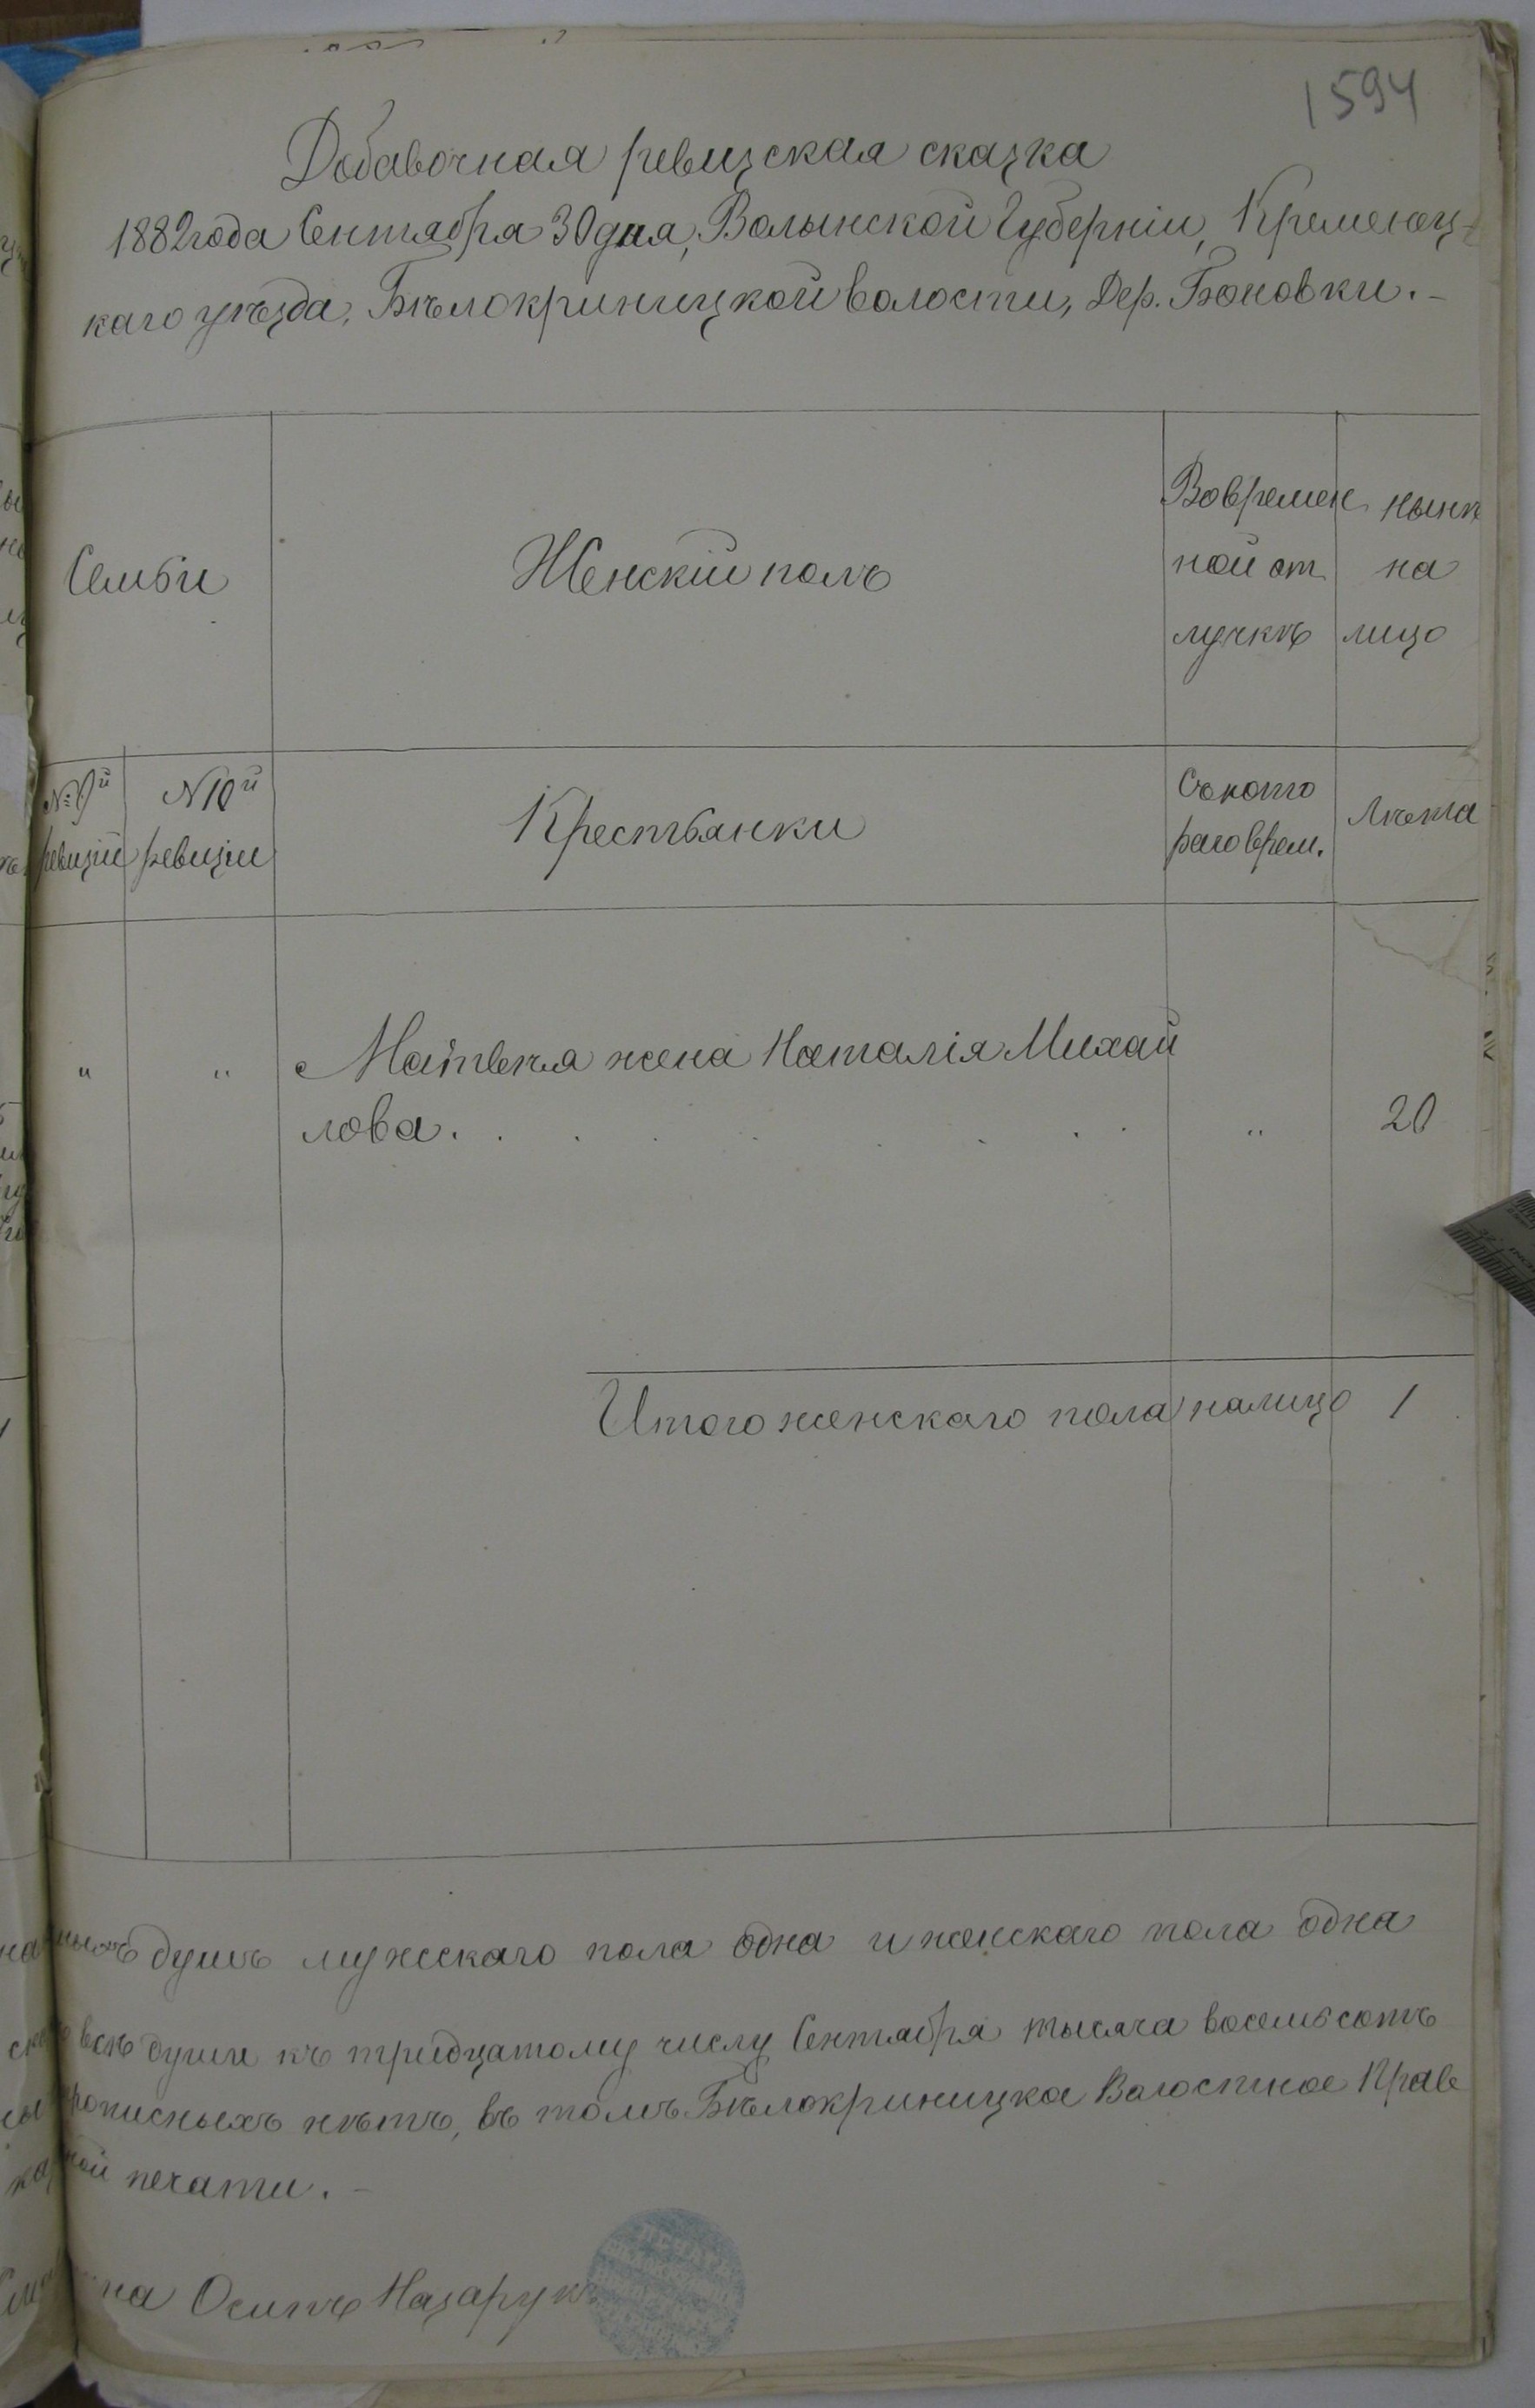 1594
Добавочная ревизская сказка
1882 года Сентября 30 дня, Волынской Губерніи, Кременец-
каго уѣзда, Бѣлокриницкой волости, Дер. Боновки.-
Семьи
Женскій полъ
Вовремен
ной от
лучкѣ
нынѣ
на
лицо
№ 9й
ревизіи
N 10й
ревизіи
Крестьянки
Съ кото
раго врем.
Лѣта
" " Матвѣя жена Наталія Михай
лова. . . . . . . . . " 20
Итого женскаго пола налицо 1
душъ мужескаго пола одна и женскаго пола одна
всѣ души къ тридцатому числу Сентября тысяча восемьсотъ
прописныхъ нѣтъ, въ томъ Бѣлокриницкое Волостное Прав
ной печати.-
на Осипъ Назарукъ